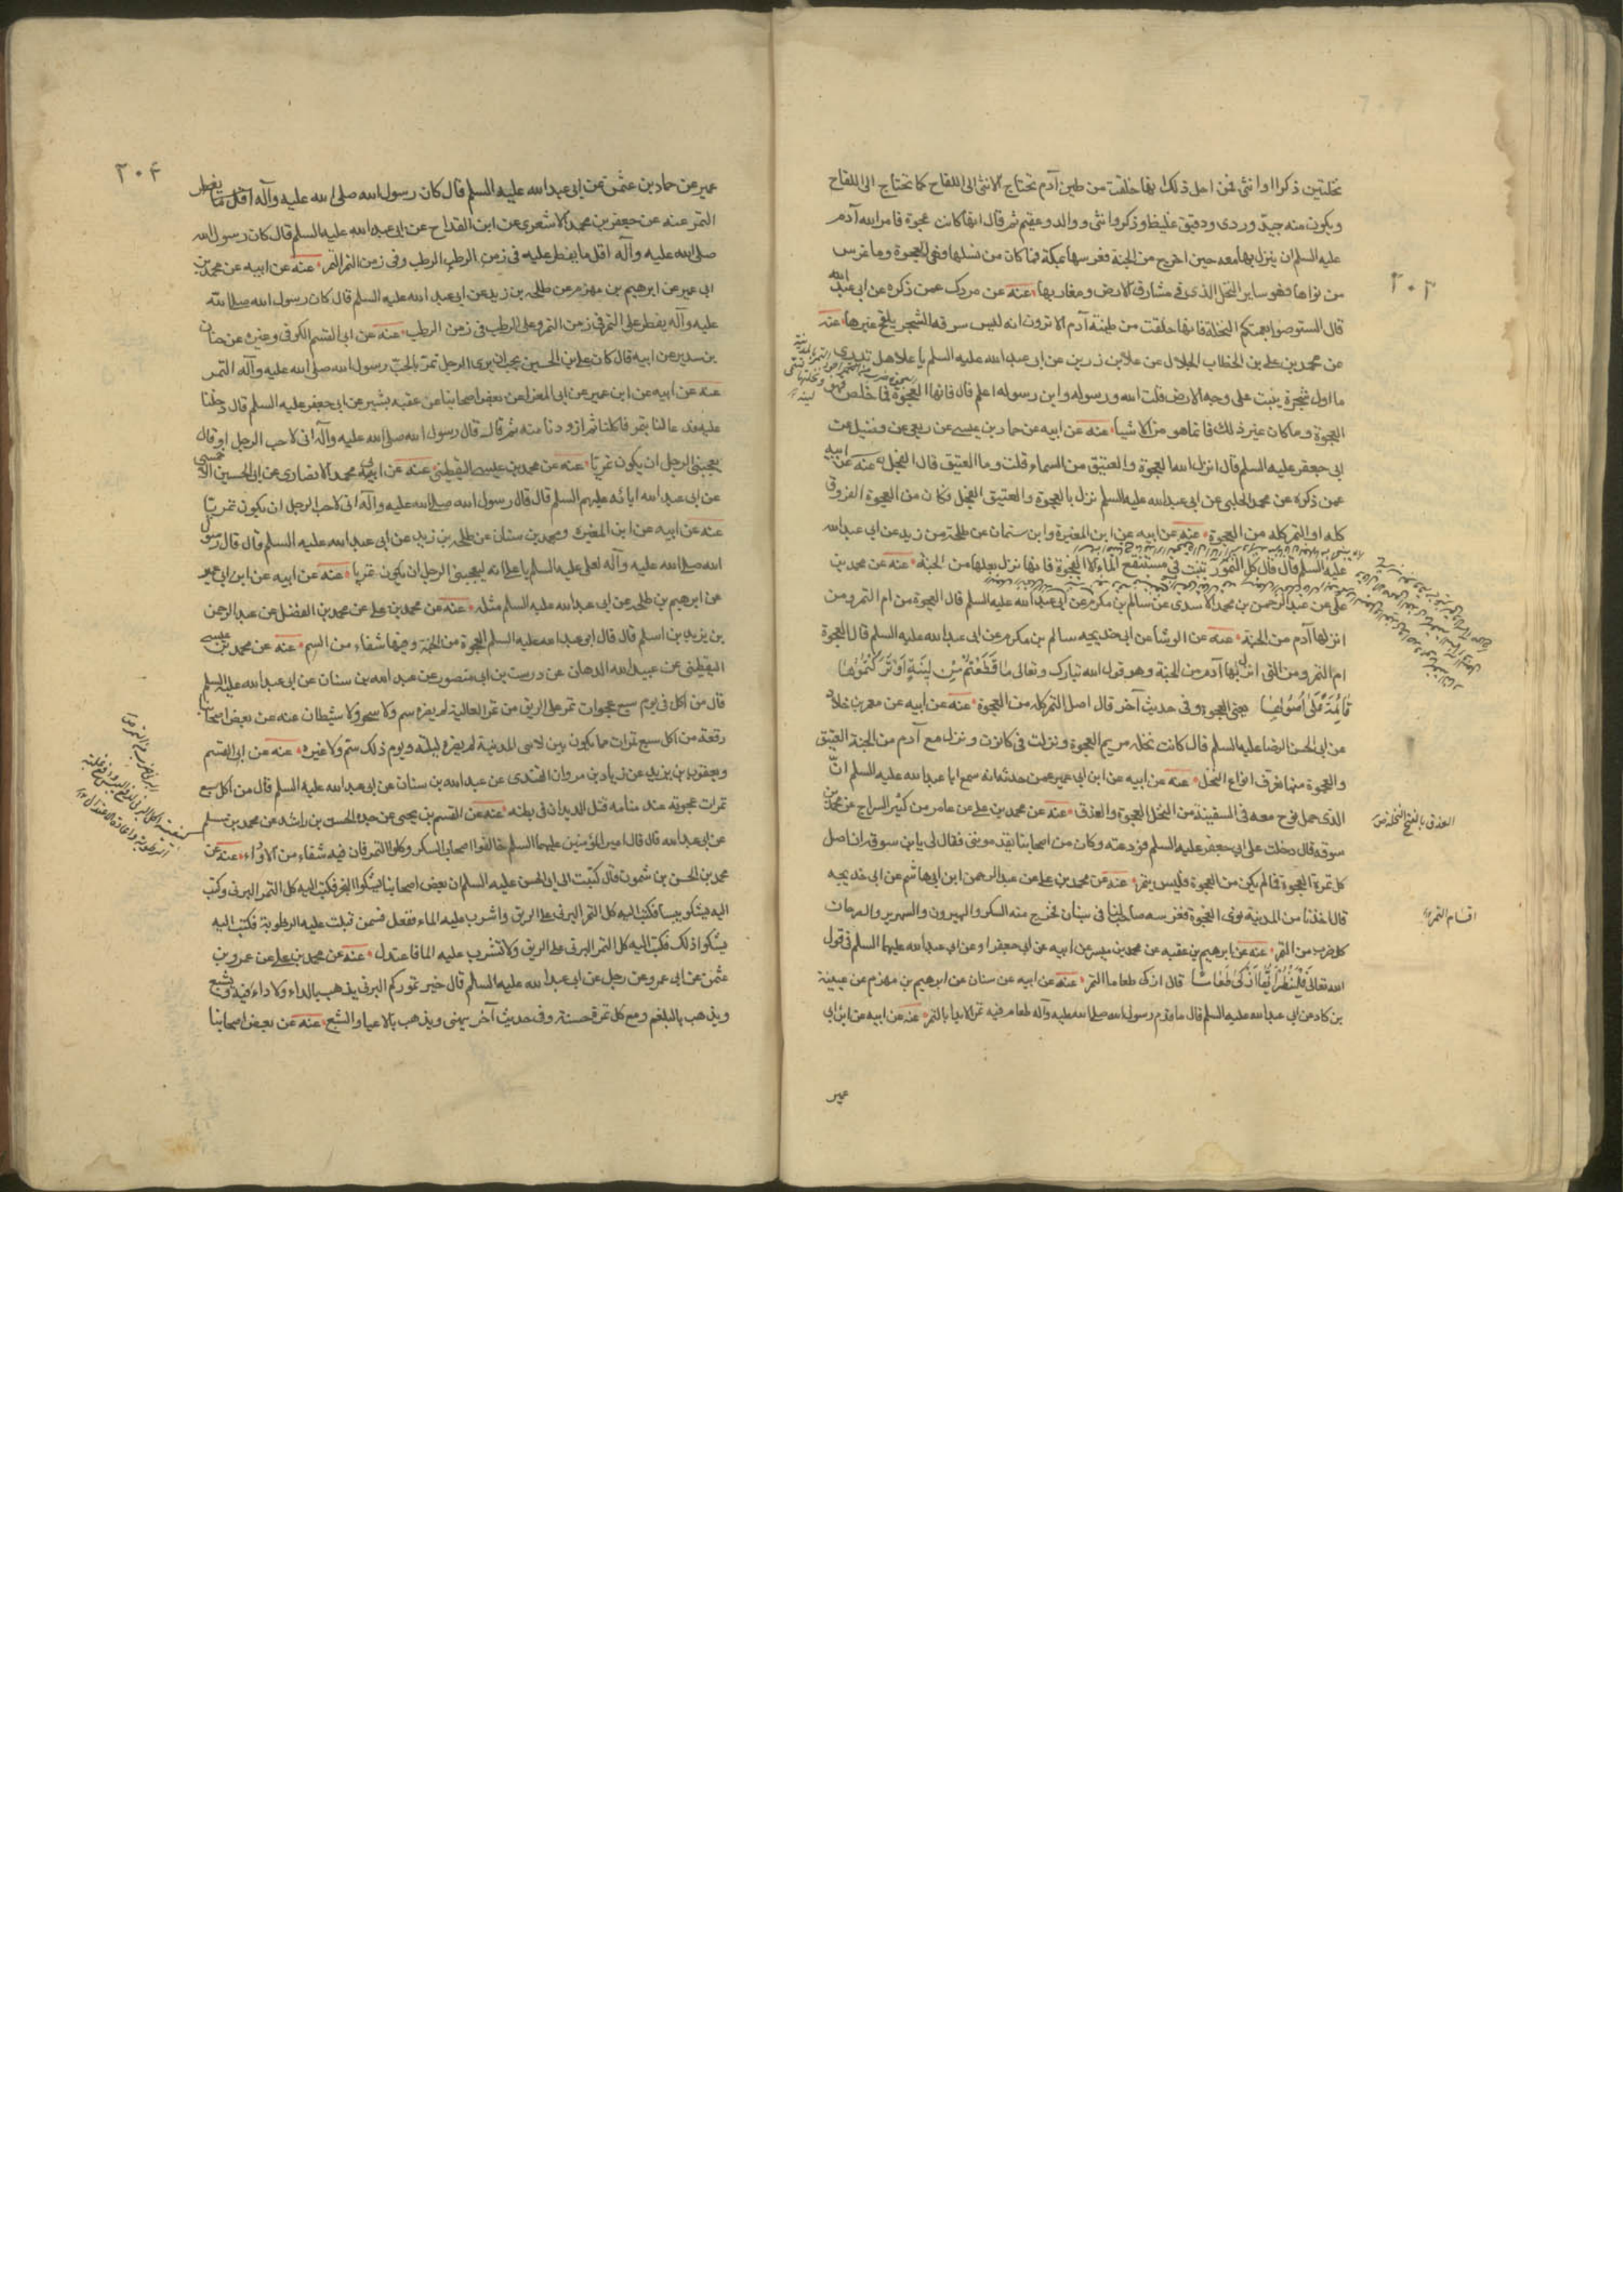 ٢٠٣
نخلتين ذكرا وانثى فمن اجل ذلك انها خلقت من طين آدم تحتاج الانثى الى اللقاح كما تحتاج الى اللقاح
ويكون منه جيد وردى ودقيق غليظ وذكر وانثى ووالد وعقيم ثم قال انها كانت عجوة فامر الله آدم
عليه السلم ان ينزل بها معه حين اخرج من الجنة فغرسها بمكة فما كان من نسلها فهى العجوة وما غرس
من نواها فهو ساير النخل الذى فى مشارق الارض ومغاربها عنه عن مروك عمن ذكره عن ابى عبد الله
قال استوصوا بعمتكم النخلة فانها خلقت من طينة آدم الا ترون انه ليس من الشجر يلقح غيرها عنه
عن محمد بن على بن الخطاب الجلال عن علا بن رزين عن ابى عبد الله عليه السلم يا علا هل تدرى
ما اول شجرة نبتت على وجه الارض قلت الله ورسوله وابن رسوله اعلم قال فانها العجوة فما خلص فهو
العجوة وما كان غير ذلك فانما هو من الاشيا عنه عن ابيه عن حماد بن عيسى عن ربعى عن فضيل عن
ابى جعفر عليه السلم قال انزل الله العجوة والعتيق من السماء قلت وما العتيق قال الفحل عنه عن ابيه
عمن ذكره عن محمد الحلبى عن ابى عبد الله عليه السلم نزل بالعجوة والعتيق الفحل فكان من العجوة العذوق
كلها والتمر كله من العجوة عنه عن ابيه عن ابن المغيرة وابن سنان عن طلحة بن زيد عن ابى عبد الله
عليه السلم قال قال كل التمور تنبت فى مستنقع الماء الا العجوة فانها نزل بعلها من الجنة عنه عن محمد بن
على عن عبد الرحمن بن محمد الاسدى عن سالم بن مكرم عن ابى عبد الله عليه السلم قال العجوة من ام التمر ومن
انزلها آدم من الجنة عنه عن الوشا عن ابى خديجه سالم بن مكرم عن ابى عبد الله عليه السلم قال العجوة
ام التمر ومن التى انزل بها آدم من الجنة وهو قول الله تبارك وتعالى مَا قَطَعْتُمْ مِنْ لِينَةٍ اَوْ تَرَكْتُمُوهَا
قَائِمَةً عَلَى اُصُولِهَا يعنى العجوة وفى حديث آخر قال اصل التمر كله من العجوة عنه عن ابيه عن معمر بن خلاد
عن ابى الحسن الرضا عليه السلم قال كانت نخله مريم العجوة ونزلت فى كانون ونزل مع آدم من الجنة العتيق
والعجوة منها تفرق انواع النخل عنه عن ابيه عن ابن ابى عمير عمن حدثه انه سمع ابا عبد الله عليه السلم انّ
الذى حمل نوح معه فى السفينة من النخل العجوة والعذق عنه عن محمد بن على عن عامر بن كثير السراج عن محمد بن
سوقه قال دخلت على ابى جعفر عليه السلم فودعته وكان من اصحابنا فقال لى يا بن سوقه ان اصل
كل تمرة العجوة فما لم يكن من العجوة فليس بتمر عنه عن محمد بن على عن عبد الرحمن ابن ابى هاشم عن ابى خديجه
قال اخذنا من المدينة نوى العجوة فغرسه صاحب لنا فى بستان فخرج منه السكر والهيرون والشهريز والصرفان
كل ضرب من التمر عنه عن ابرهيم بن عقبه عن محمد بن ميسر عن ابيه عن ابى جعفر او عن ابى عبد الله عليهما السلم فى قول
الله تعالى فَلْيَنْظُرْ اَيُّهَا اَزْكَى طَعَامًا قال ازكى طعاما التمر عنه عن ابيه عن سنان عن ابرهيم بن مهزم عن عنبسة
بن بجاد عن ابى عبد الله عليه السلم قال ما قدم رسول الله صلى الله عليه وآله طعام فيه تمر الا بدا بالتمر عنه عن ابيه عن ابن ابى
عمير
العذق بالفتح النخلة
اقسام التمر
٢٠٤
عمير عن حماد بن عثمن عن ابى عبد الله عليه السلم قال كان رسول الله صلى الله عليه وآله اول ما يفطر
التمر عنه عن جعفر بن محمد الاشعرى عن ابن القداح عن ابى عبد الله عليه السلم قال كان رسول الله
صلى الله عليه وآله اول ما يفطر عليه فى زمن الرطب الرطب وفى زمن التمر التمر عنه عن ابيه عن محمد بن
ابى عمير عن ابرهيم بن مهزم عن طلحه بن زيد عن ابى عبد الله عليه السلم قال كان رسول الله صلى الله
عليه وآله يفطر على التمر فى زمن التمر وعلى الرطب فى زمن الرطب عنه عن ابى القسم الكوفى وغيره عن حنان
بن سدير عن ابيه قال كان على بن الحسين يحب ان يرى الرجل تمريا لحب رسول الله صلى الله عليه وآله التمر
عنه عن ابيه عن ابن عمير عن ابى المغرا عن بعض اصحابنا عن عقبه بشير عن ابى جعفر عليه السلم قال دخلنا
عليه فدعا لنا بتمر فاكلنا ثم ازددنا منه ثم قال قال رسول الله صلى الله عليه وآله انى لاحب الرجل او قال
يعجبنى الرجل ان يكون تمريًا عنه عن محمد بن عيسى اليقطينى عنه عن ابى محمد الانصارى عن ابى الحسين الاحمسى
عن ابى عبد الله ابائه عليهم السلم قال قال رسول الله صلى الله عليه وآله انى لاحب الرجل ان يكون تمريا
عنه عن ابيه عن ابن المغيره ومحمد بن سنان عن طلحه بن زيد عن ابى عبد الله عليه السلم قال قال رسول
الله صلى الله عليه وآله لعلى عليه السلم يا على انه ليعجبنى الرجل ان يكون تمريا عنه عن ابيه عن ابن ابى عمير
عن ابرهيم بن طلحه عن ابى عبد الله عليه السلم مثله عنه عن محمد بن على عن محمد بن الفضل عن عبد الرحمن
بن يزيد بن اسلم قال قال ابى عبد الله عليه السلم العجوة من الجنة وفيها شفاء من السم عنه عن محمد بن عيسى
اليقطينى عن عبيد الله الدهان عن درست بن ابى منصور عن عبد الله بن سنان عن ابى عبد الله عليه السلم
قال من اكل فى يوم سبع عجوات تمر على الريق من تمر العالية لم يضره سم ولا سحر ولا شيطان عنه عن بعض اصحابنا
رفعه من اكل سبع تمرات مما يكون بين لابتى المدينة لم يضره ليلته ويوم ذلك سم ولا غيره عنه عن ابى القسم
ويعقوب بن يزيد عن زياد بن مروان القندى عن عبد الله بن سنان عن ابى عبد الله عليه السلم قال من اكل سبع
تمرات عجوة عند منامه قتل الديدان فى بطنه عنه عن القسم بن يحيى عن جده الحسن بن راشد عن محمد بن مسلم
عن ابى عبد الله قال قال امير المؤمنين عليهما السلم خالفوا اصحاب السكر وكلوا التمر فان فيه شفاء من الادواء عنه عن
محمد بن الحسن بن شمون قال كتبت الى ابى الحسن عليه السلم ان بعض اصحابنا يشكوا البخر فكتب اليه كل التمر البرنى وكتب
اليه يشكو يبسا فكتب اليه كل التمر البرنى على الريق واشرب عليه الماء ففعل فسمن فبلت عليه الرطوبة فكتب اليه
يشكوا ذلك فكتب اليه كل التمر البرنى على الريق ولا تشرب عليه الما فاعتدل عنه عن محمد بن على عن عمرو بن
عثمن عن ابى عمرو عن رجل عن ابى عبد الله عليه السلم قال خير تموركم البرنى يذهب بالداء ولا داء فيه ويشبع
ويذهب بالبلغم ومع كل تمرة حسنة وفى حديث آخر يهنى ويذهب بالاعيا والشبع عنه عن بعض اصحابنا